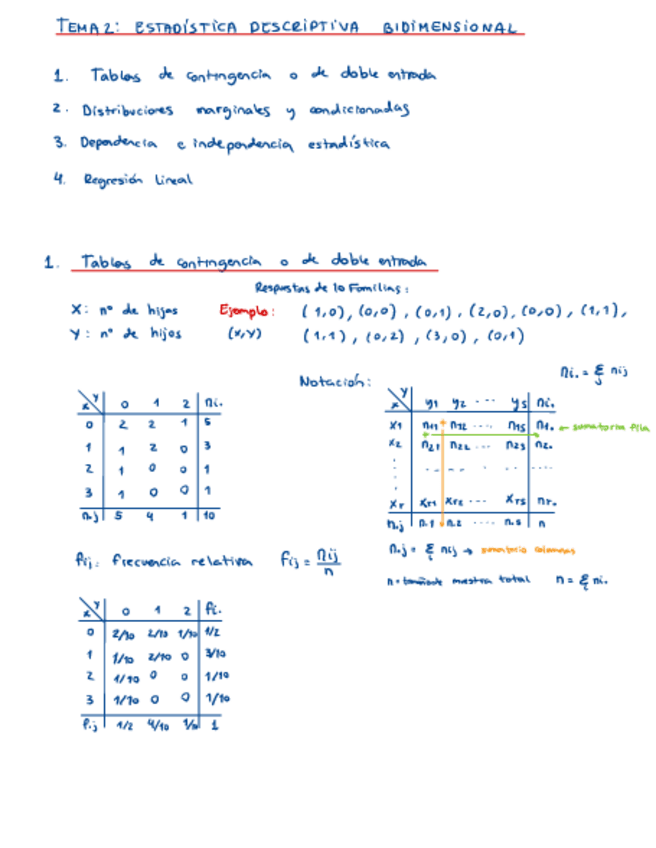 TEMA 2: ESTADÍSTICA DESCRIPTIVA BIDIMENSIONAL
1. Tablas de contingencia o de doble entrada
2. Distribuciones marginales y condicionadas
3. Dependencia e independencia estadística
4. Regresión Lineal
1. Tablas de contingencia o de doble entrada
Respuestas de 10 Familias:
X: nº de hijas Ejemplo: (1,0), (0,0), (0,1), (2,0), (0,0), (1,1),
Y: nº de hijos (X,Y) (1,1), (0,2), (3,0), (0,1)
Notación: ni. = Σ nij
j
X Y 0 1 2 ni.
0 2 2 1 5
1 1 2 0 3
2 1 0 0 1
3 1 0 0 1
n.j 5 4 1 10
X Y y1 y2 ... ys ni.
x1 n11 n12 .... n1s n1. ← sumatorio fila
x2 n21 n22 ... n2s n2.
xr xr1 xr2 ... xrs nr.
n.j n.1 n.2 .... n.s n
n.j = Σ nij → sumatorio columnas
n = tamaño muestra total n = Σ ni.
fij: frecuencia relativa fij = nij/n
X Y 0 1 2 fi.
0 2/10 2/10 1/10 1/2
1 1/10 2/10 0 3/10
2 1/10 0 0 1/10
3 1/10 0 0 1/10
f.j 1/2 4/10 1/10 1